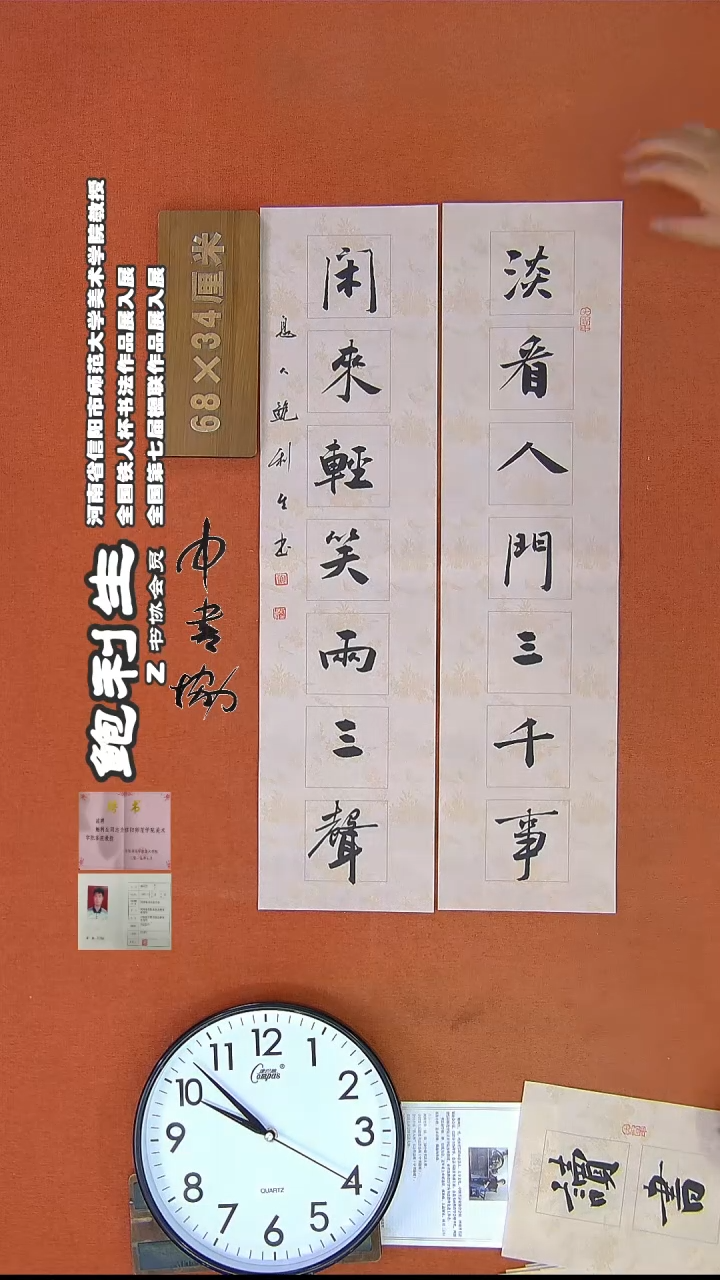 淡看人門三千事
閑來輕笑兩三聲
息人鮑利生书
68×34厘米
河南省信阳市师范大学美术学院教授
全国铁人杯书法作品展入展
全国第七届楹联作品展入展
鲍利生
Z书协会员
中书协
聘书
12
1
2
3
4
5
6
7
8
9
10
11
Compas
QUARTZ
讀書